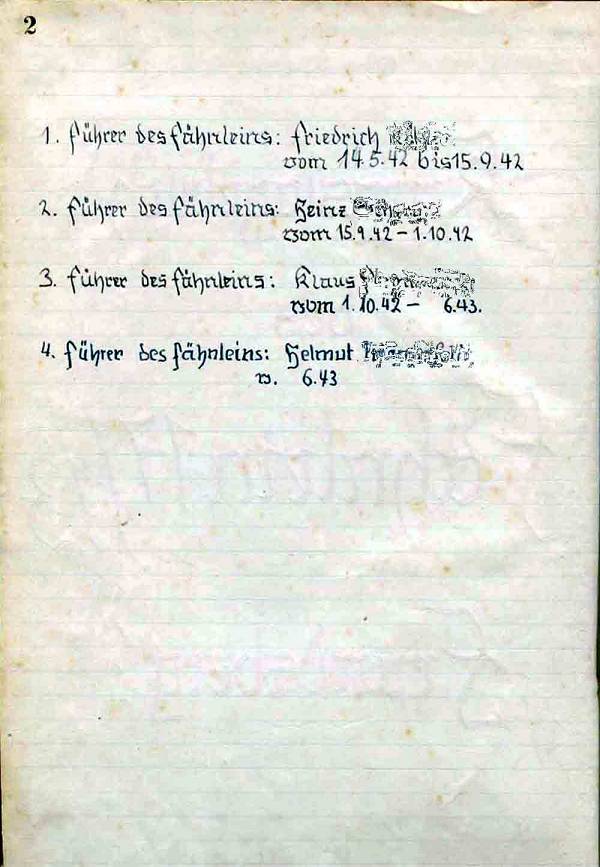 2
1. Führer des Fähnleins: Friedrich
vom 14.5.42 bis 15.9.42
2. Führer des Fähnleins: Heinz
vom 15.9.42 – 1.10.42
3. Führer des Fähnleins: Klaus
vom 1.10.42 – 6.43.
4. Führer des Fähnleins: Helmut
v. 6.43